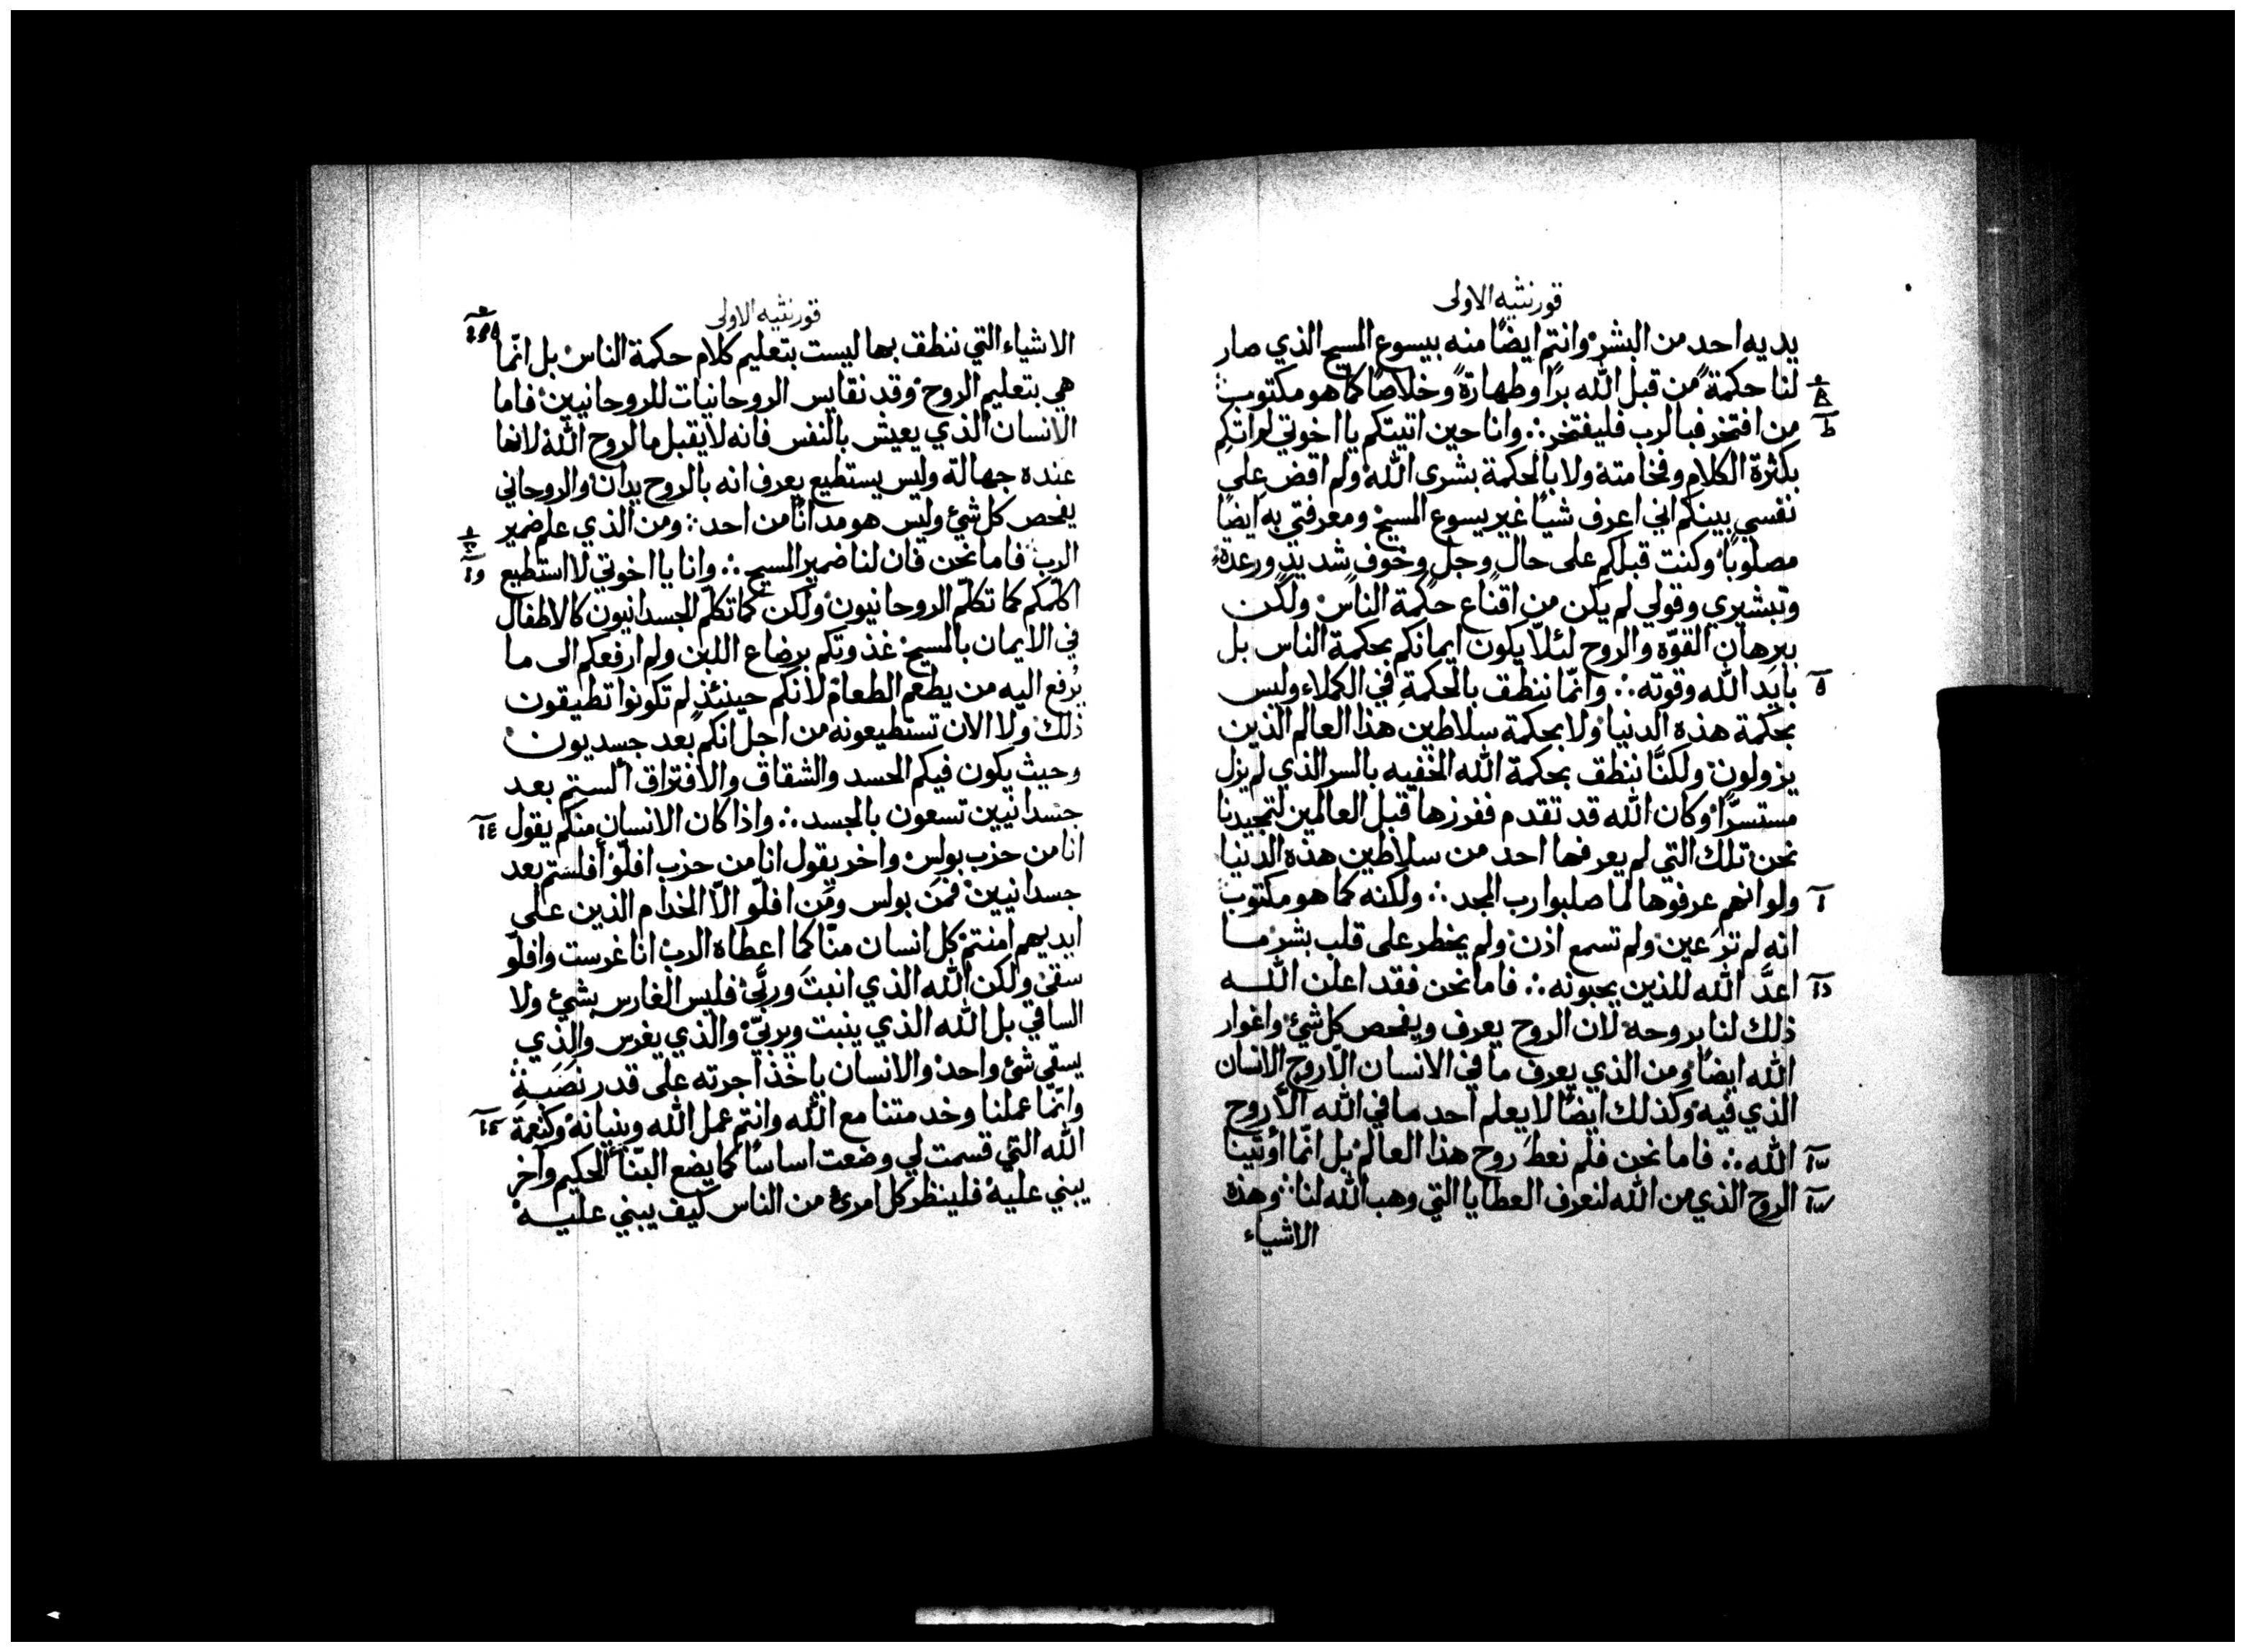 قورنثيه الاولى
يديه احد من البشر وانتم ايضًا منه بيسوع المسيح الذي صار
لنا حكمةً من قبل الله برًا وطهارةً وخلاصًا كما هو مكتوب
من افتخر فبالرب فليفتخر ∴ وانا حين اتيتكم يا اخوتي لم اتكم
بكثرة الكلام وفخامته ولا بالحكمة بشرى الله ولم اقض على
نفسي بينكم اني اعرف شيًا غير يسوع المسيح ومعرفتي به ايضًا
مصلوبًا وكنت قبلكم على حال وجل وخوف شديد ورعدة
وتبشيري وقولي لم يكن من اقناع حكمة الناس ولكن
ببرهان القوّه والروح لئلّا يكون ايمانكم بحكمة الناس بل
بايد الله وقوته ∴ وانّما ننطق بالحكمة في الكملاء وليس
بحكمة هذه الدنيا ولا بحكمة سلاطين هذا العالم الذين
يزولون ولكنّا ننطق بحكمة الله الخفيه بالسر الذي لم يزل
مستسرًّا وكان الله قد تقدم ففرزها قبل العالمين لتمجيدنا
نحن تلك التي لم يعرفها احد من سلاطين هذه الدنيا
ولو انهم عرفوها لما صلبوا رب المجد ∴ ولكنه كما هو مكتوب
انه لم تر عين ولم تسمع اذن ولم يخطر على قلب بشر ما
اعدَّ الله للذين يحبونه ∴ فاما نحن فقد اعلن الله
ذلك لنا بروحه لان الروح يعرف ويفحص كل شئ واغوار
الله ايضًا ومن الذي يعرف ما في الانسان الّا روح الانسان
الذي فيه وكذلك ايضًا لا يعلم احد ما في الله الّا روح
الله ∴ فاما نحن فلم نعط روح هذا العالم بل انّما اوتينا
الروح الذي من الله لنعرف العطايا التي وهب الله لنا وهذه
الاشياء
قورنثيه الاولى
الاشياء التي ننطق بها ليست بتعليم كلام حكمة الناس بل انّما
هي بتعليم الروح وقد نقايس الروحانيات للروحانيين فاما
الانسان الذي يعيش بالنفس فانه لا يقبل ما لروح الله لانها
عنده جهالة وليس يستطيع يعرف انه بالروح يدان والروحاني
يفحص كل شئ وليس هو مدانًا من احد ∴ ومن الذي علم ضمير
الرب فاما نحن فان لنا ضمير المسيح ∴ وانا يا اخوتي لا استطيع
اكلّمكم كما تكلّم الروحانيون ولكن كما تكلّم الجسدانيون كالاطفال
في الايمان بالمسيح غذوتكم برضاع اللبن ولم ارفعكم الى ما
يُرفع اليه من يطعم الطعام لانكم حينئذٍ لم تكونوا تطيقون
ذلك ولا الان تستطيعونه من اجل انكم بعد جسديون
وحيث يكون فيكم الحسد والشقاق والافتراق الستم بعد
جسدانيين تسعون بالجسد ∴ واذا كان الانسان منكم يقول
انا من حزب بولس واخر يقول انا من حزب افلّو أفلستم بعد
جسدانيين فمن بولس ومن افلّو الّا الخدام الذين على
ايديهم امنتم كل انسان منّا كما اعطاه الرب انا غرست وافلّو
سقى ولكن الله الذي انبت وربّى فليس الغارس بشئ ولا
الساقي بل الله الذي ينبت ويربيّ والذي يغرس والذي
يسقي شئ واحد والانسان ياخذ اجرته على قدر نَصَبِه
وانّما عملنا وخدمتنا مع الله وانتم عمل الله وبنيانه وكنعمة
الله التي قسمت لي وضعت اساسًا كما يضع البنّاء الحكيم واخر
يبني عليه فلينظر كل امرئ من الناس كيف يبني عليه